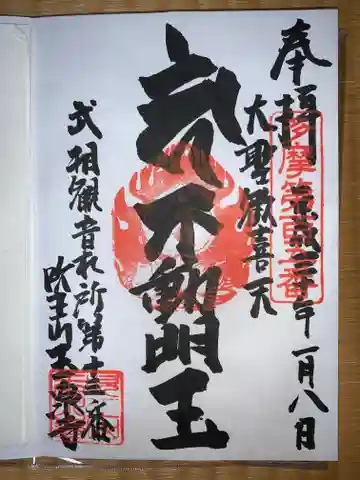 奉拝
多摩第百二番
平成三十年一月八日
大聖歓喜天
不動明王
武相観音札所第十三番
玉泉寺